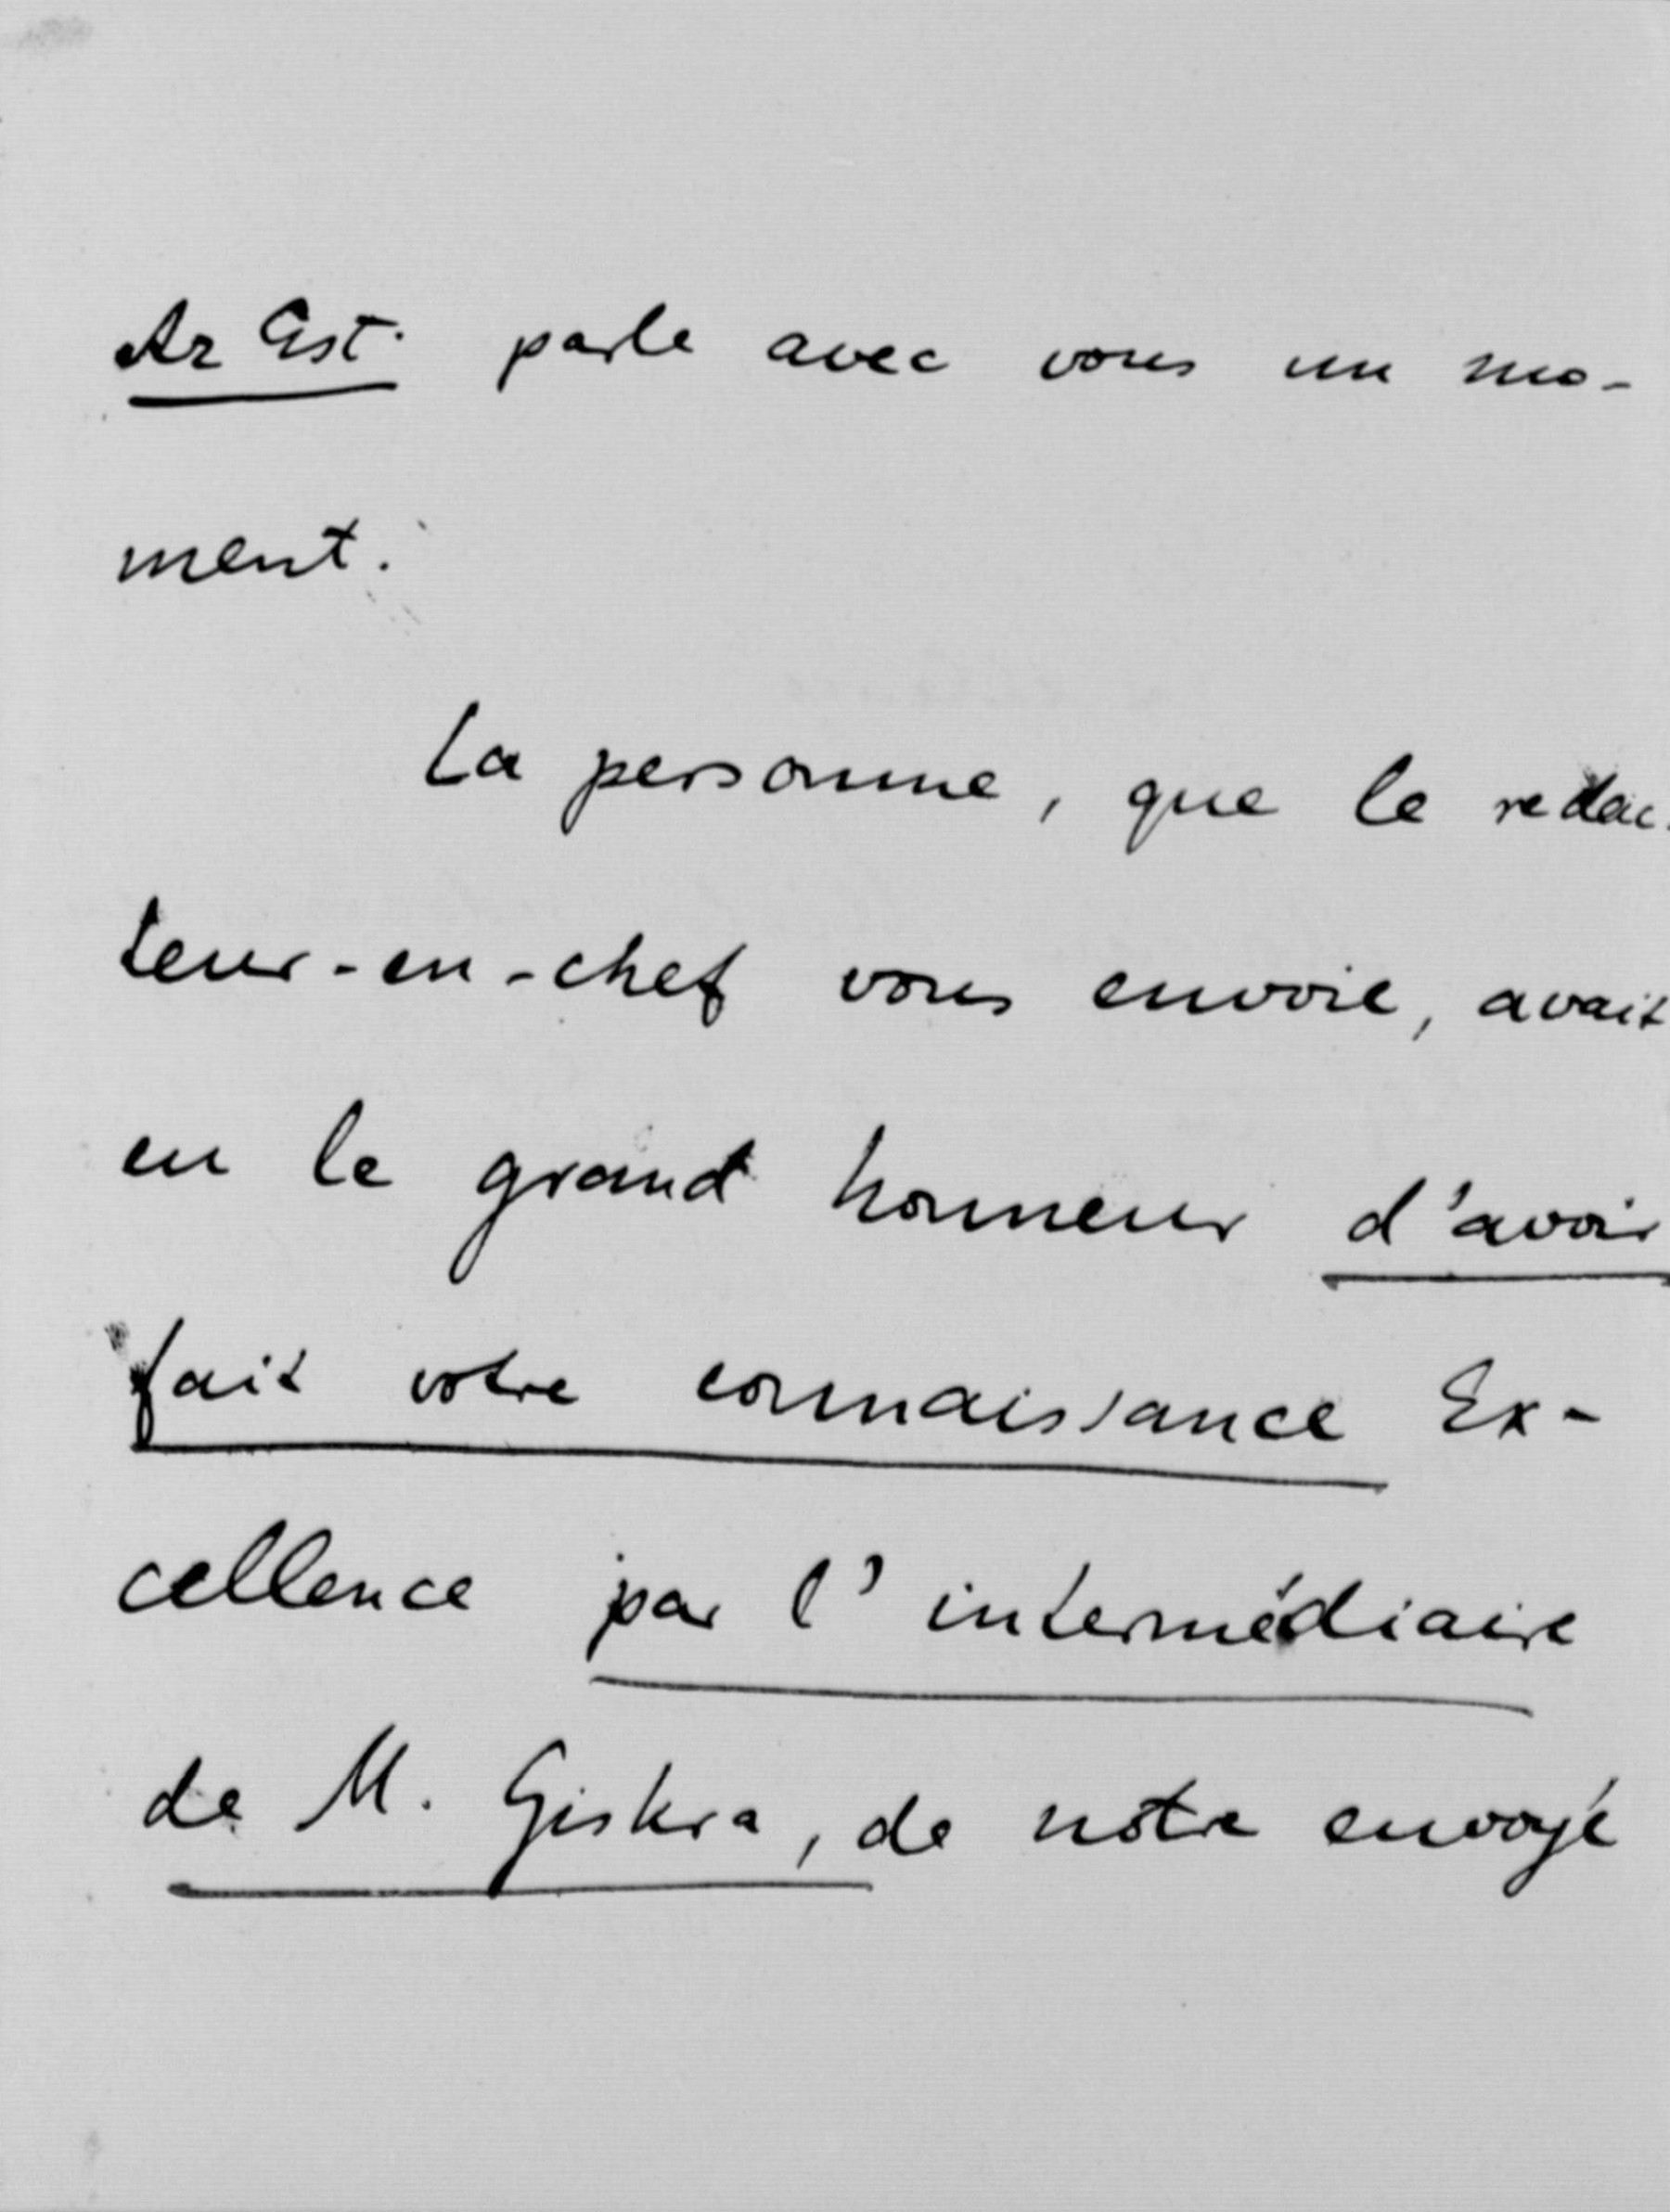 Az Est. parle avec vous un mo-
ment.
La personne, que le redac-
teur-en-chef vous envoie, avait
eu le grand honneur d'avoir
fait votre connaissance Ex-
cellence par l'intermédiaire
de M. Giskra, de notre envoyé